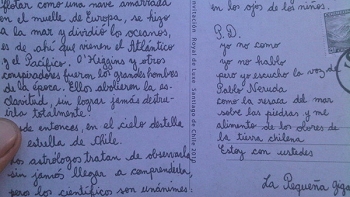 flotar como una nave amarrada
en el muelle de Europa, se hizo
a la mar y dividió los océanos,
es de ahí que vienen el Atlántico
y el Pacífico. O'Higgins y otros
conspiradores fueron los grandes hombres
de la época. Ellos abolieron la es-
clavitud, sin lograr jamás destru-
irla totalmente.
desde entonces, en el cielo destella
estrella de Chile.
os astrólogos tratan de observarla
sin jamás llegar a comprenderla,
pero los científicos son unánimes:
Royal de Luxe Santiago de Chile 2012
en los ojos de los niños.
P.D.
yo no como
yo no hablo
pero yo escucho la voz de
Pablo Neruda
como la resaca del mar
sobre las piedras y me
alimento de los olores de
la tierra chilena
Estoy con ustedes
La Pequeña Giga